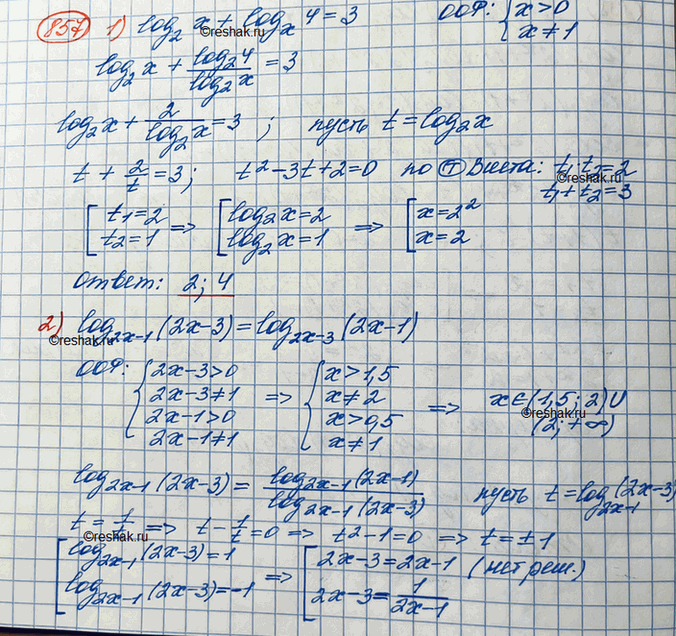 857 1) log₂ x + logₓ 4 = 3 ООФ: { x > 0
x ≠ 1
©reshak.ru
log₂ x + log₂4 / log₂x = 3
log₂ x + 2 / log₂x = 3 ; пусть t = log₂x
t + 2/t = 3; t² - 3t + 2 = 0 по Т Виета: t₁·t₂ = 2
©reshak.ru
t₁ + t₂ = 3
[ t₁ = 2 => [ log₂x = 2 => [ x = 2²
t₂ = 1 log₂x = 1 x = 2
ответ: 2; 4
2) log₂ₓ₋₁ (2x-3) = log₂ₓ₋₃ (2x-1)
©reshak.ru
ООФ: { 2x-3>0 => { x > 1,5
2x-3≠1 x ≠ 2 => x ∈ (1,5; 2) U
2x-1>0 x > 0,5 (2; +∞)
©reshak.ru
2x-1≠1 x ≠ 1
log₂ₓ₋₁ (2x-3) = log₂ₓ₋₁ (2x-1) / log₂ₓ₋₁ (2x-3) пусть t = log₂ₓ₋₁ (2x-3)
t = 1/t => t - 1/t = 0 => t² - 1 = 0 => t = ±1
©reshak.ru
[ log₂ₓ₋₁ (2x-3) = 1 => [ 2x-3 = 2x-1 (нет реш.)
log₂ₓ₋₁ (2x-3) = -1 2x-3 = 1 / 2x-1